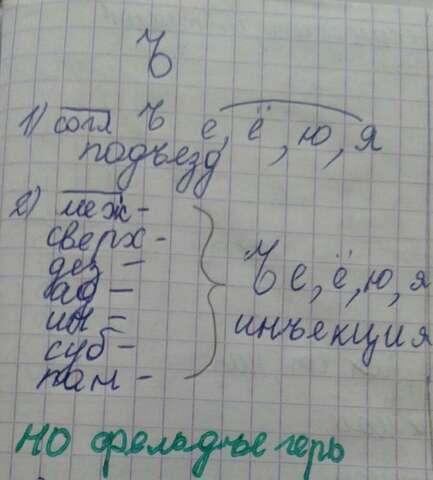 Ъ
1) согл Ъ е, ё, ю, я
подъезд
2) меж-
сверх-
дез-
ад-
ин-
суб-
пан-
Ъ е, ё, ю, я
инъекция
НО фельдъегерь